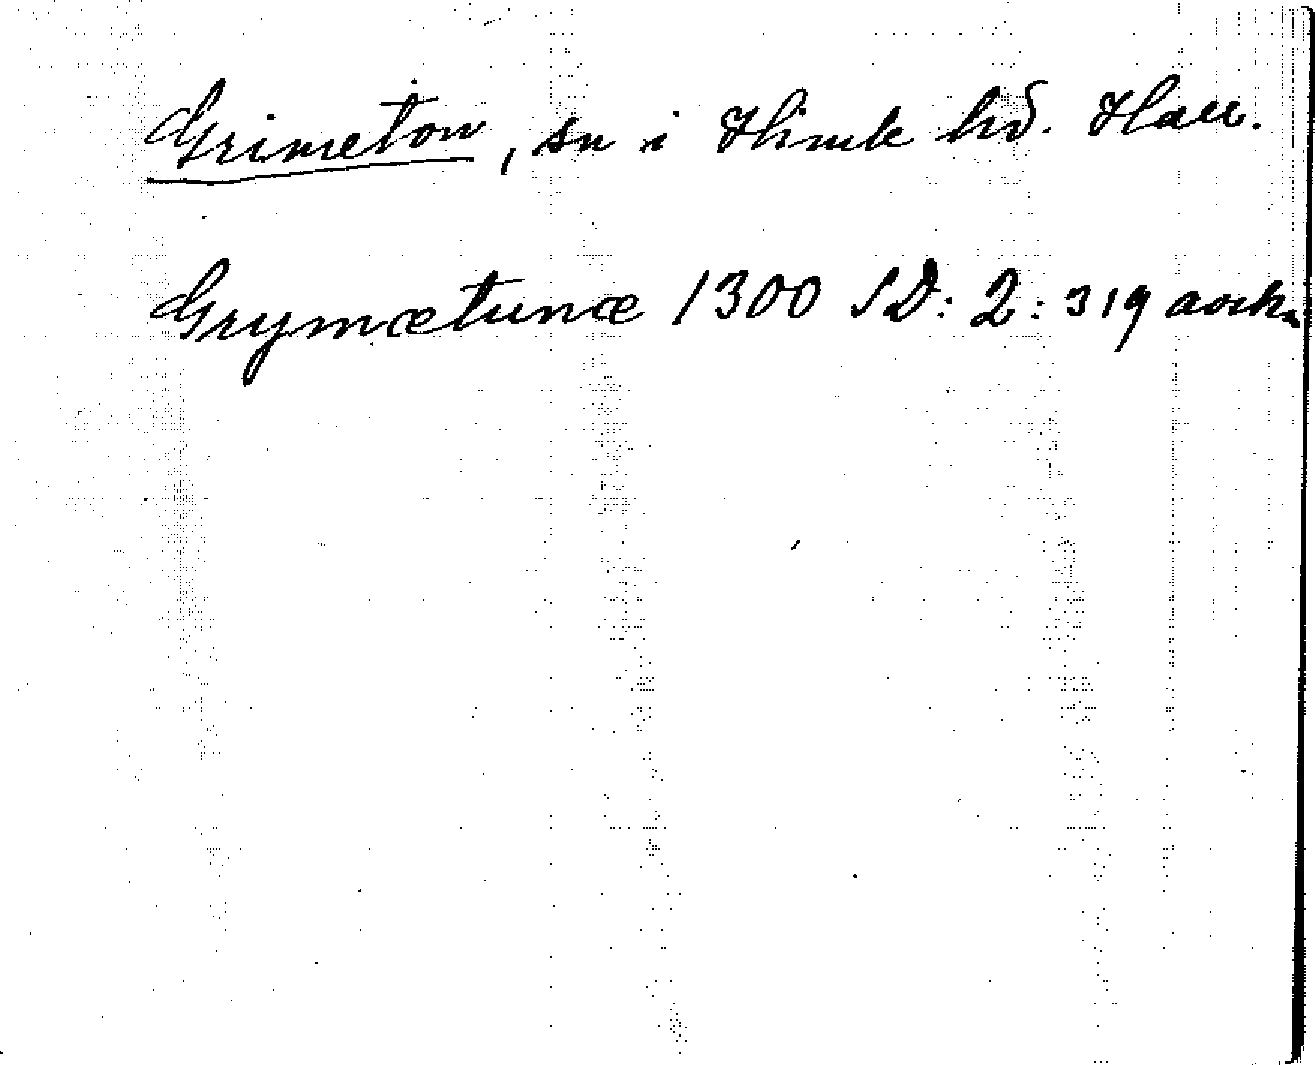 Grimeton, sn i Himle hd. Hall.
Grymætunæ 1300 SD: 2: 319 avsk.